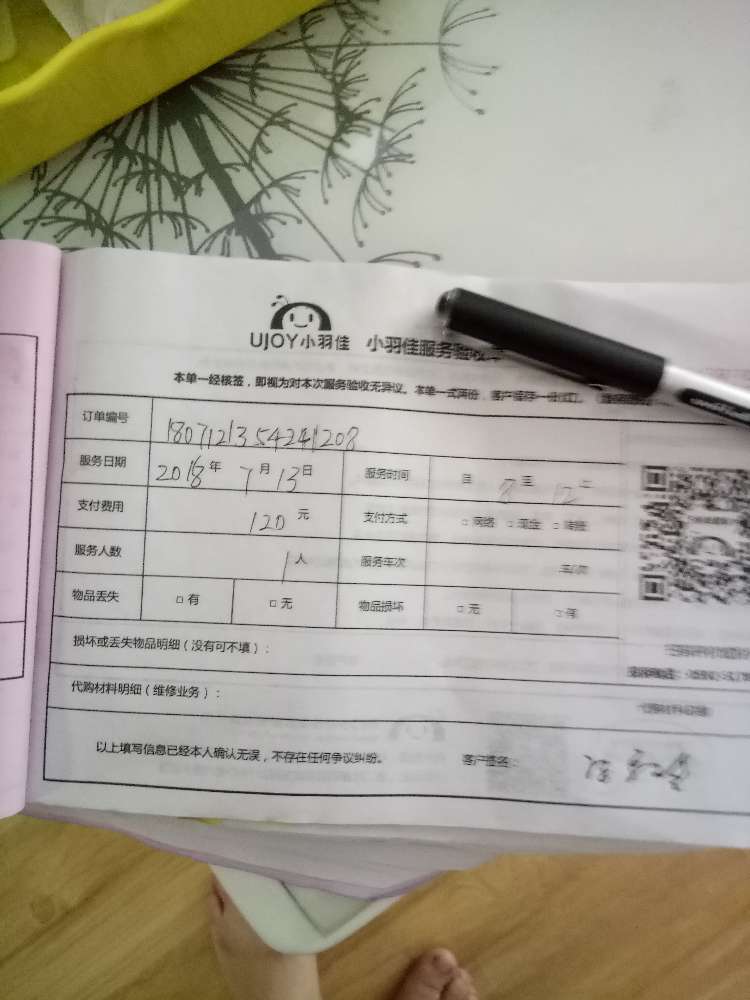 UJOY小羽佳 小羽佳服务验收单
本单一经核签，即视为对本次服务验收无异议。本单一式两份，客户留存一份
订单编号 1807121354241208
服务日期 2018年 7月 13日 服务时间 自 8 至 12 止
支付费用 120 元 支付方式 □ 网络 □ 现金 □ 转账
服务人数 1 人 服务车次 车/次
物品丢失 □ 有 □ 无 物品损坏 □ 无 □ 有
损坏或丢失物品明细（没有可不填）：
代购材料明细（维修业务）：
以上填写信息已经本人确认无误，不存在任何争议纠纷。 客户签名：